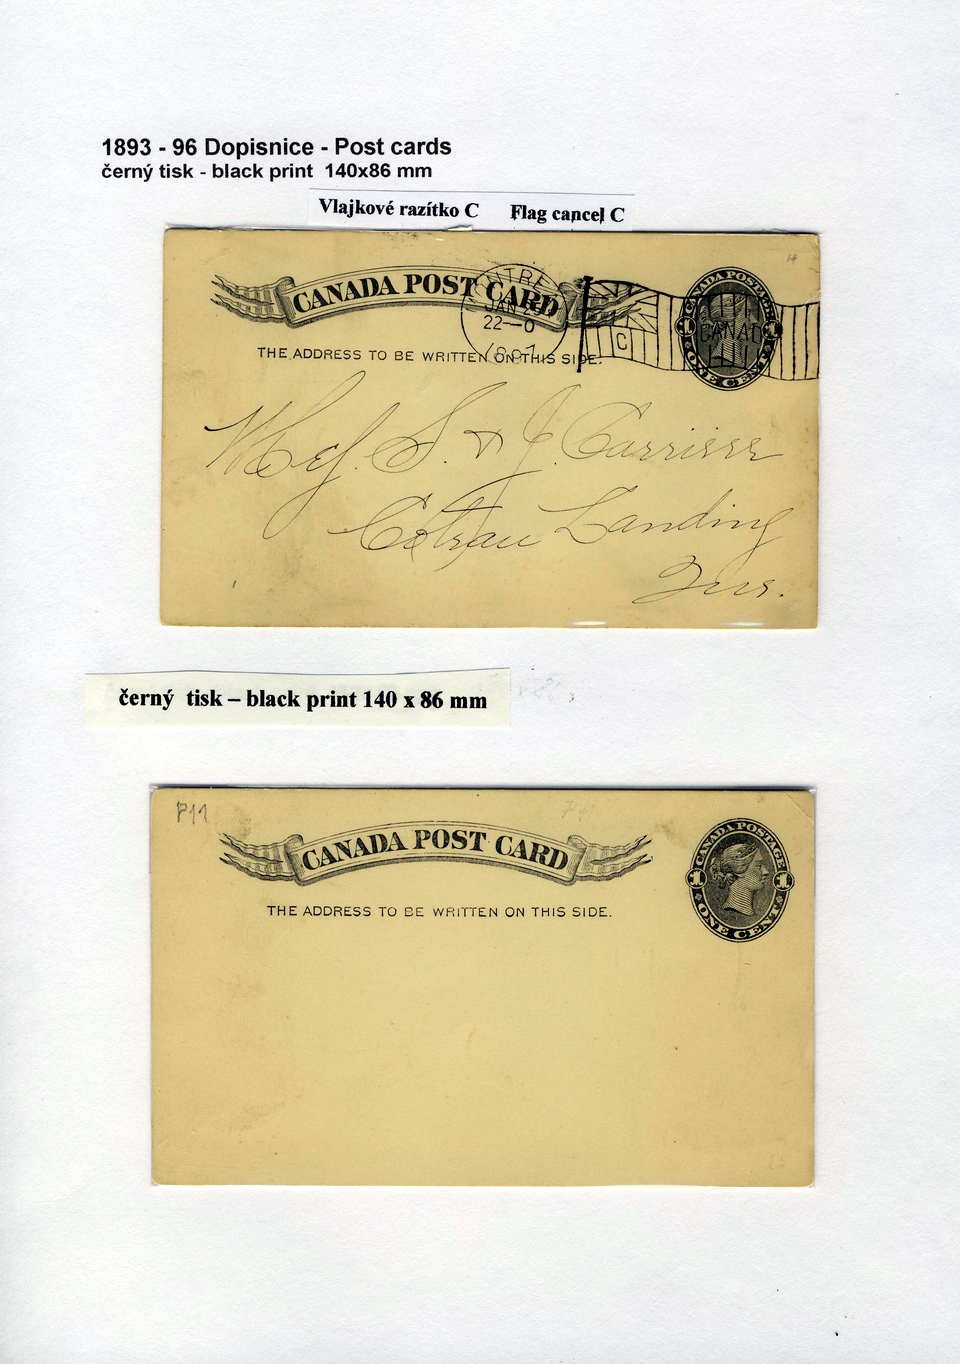 1893 - 96 Dopisnice - Post cards
černý tisk - black print 140x86 mm
Vlajkové razítko C Flag cancel C
CANADA POST CARD
CANADA POSTAGE
1 1
ONE CENT
JAN 25
22—0
1897
C
CANAD
THE ADDRESS TO BE WRITTEN ON THIS SIDE.
S. & J. Carrier
Coteau Landing
Que.
černý tisk – black print 140 x 86 mm
P11
CANADA POST CARD
CANADA POSTAGE
1 1
ONE CENT
THE ADDRESS TO BE WRITTEN ON THIS SIDE.